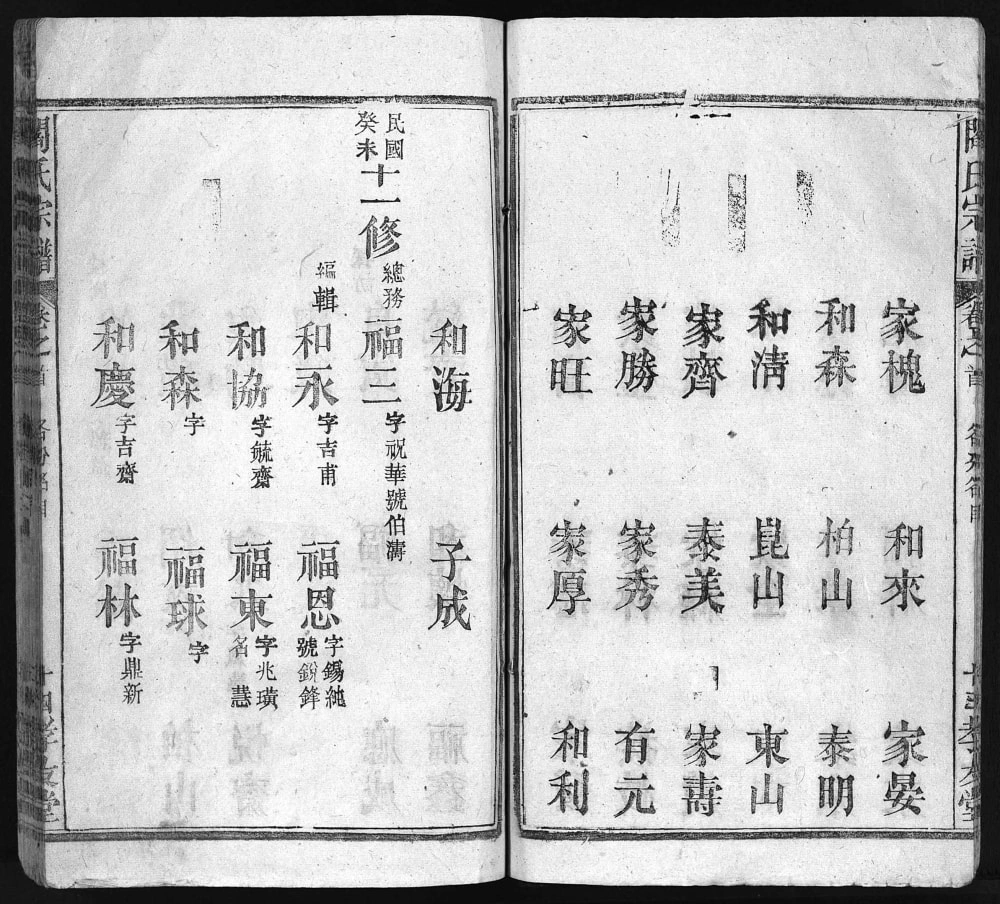 家槐 和來 家晏
和森 柏山 泰明
和清 崑山 東山
家齊 泰美 家壽
家勝 家秀 有元
家旺 家厚 和利
和海 子成
民國癸未十一修 總務 福三 字祝華號伯溝
編輯 和永 字吉甫 福恩 字錫純 號銳鋒
和協 字毓齋 福東 字兆璜 名慧
和森 字 福球 字
和慶 字吉齋 福林 字鼎新
氏宗譜 卷之首 十四 孝友堂